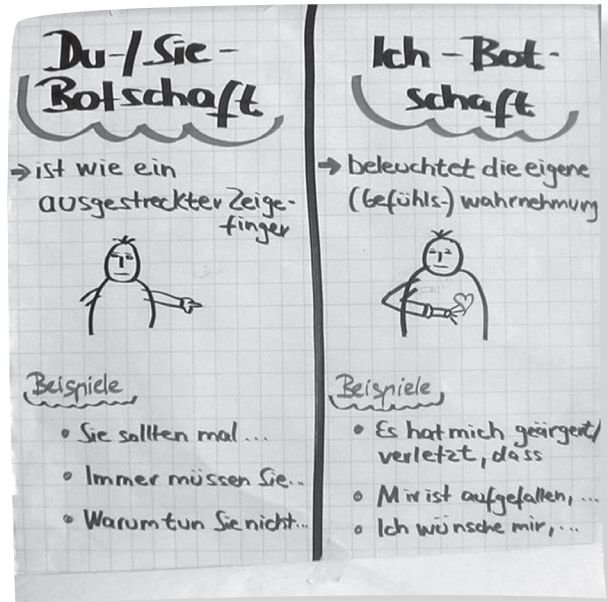 Du-/Sie-
Botschaft
→ ist wie ein
ausgestreckter Zeige-
finger
Beispiele
• Sie sollten mal...
• Immer müssen Sie...
• Warum tun Sie nicht...
Ich-Bot-
schaft
→ beleuchtet die eigene
(Gefühls-) wahrnehmung
Beispiele
• Es hat mich geärgert/
verletzt, dass
• Mir ist aufgefallen, ...
• Ich wünsche mir, ...